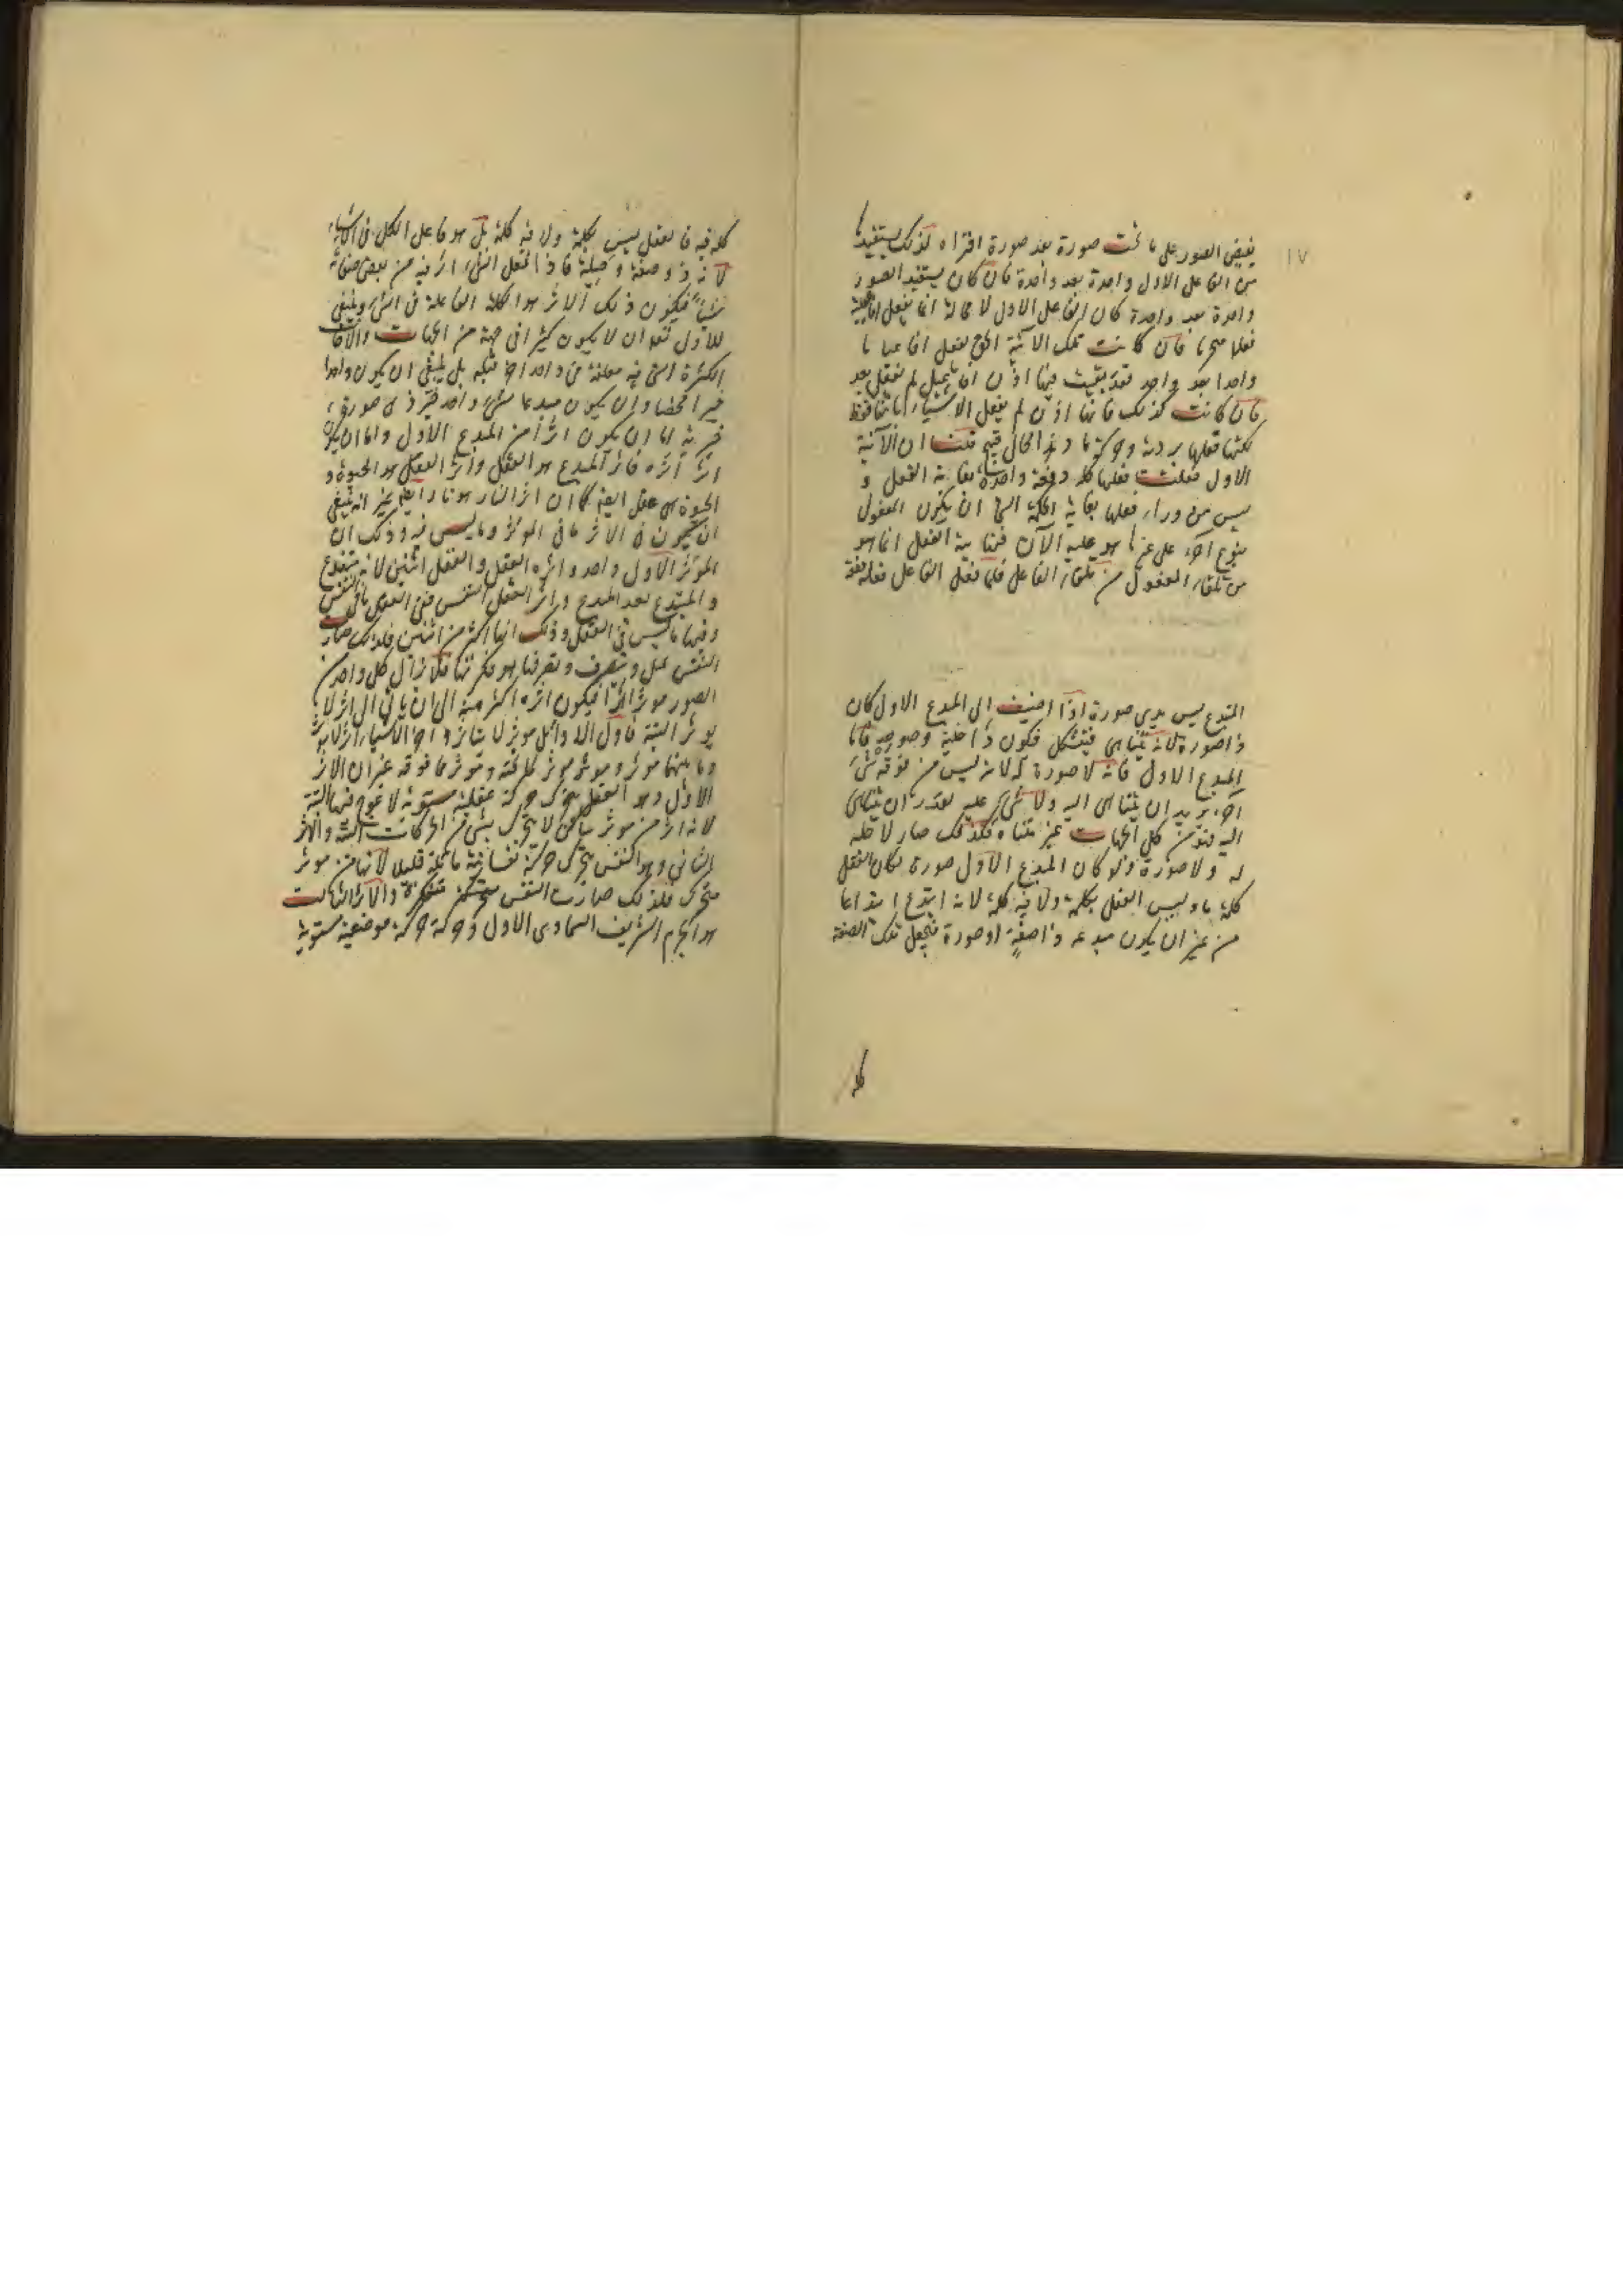 ١٧
يفيض الصور على ما تحت صورة بعد صورة افتراه كذلك يستفيدها
من الفاعل الاول واحدة بعد واحدة فان كان يستفيد الصور
واحدة بعد واحدة كان الفاعل الاول لا محالة انما يفعل
فعلها متجزيا فان كانت تلك الآنية الحق يفعل افاعيلها
واحدا بعد واحد فقد بقيت فيها اذن افاعيل لم تفعل بعد
فان كانت كذلك فانها اذن لم يفعل الاشياء بانها فقط
لكنها فعلها بروية وحركة ما وهذا محال قبيح قلنا ان الآنية
الاول فعلت فعلها كله دفعة واحدة بغاية الفعل و
ليس من وراء فعلها بغاية الحكمة الى ان يكون المفعول
بنوع آخر على غير ما هو عليه الآن فنهاية الفعل انما هو
من تلقاء المفعول لا من تلقاء الفاعل فلما فعل الفاعل فعله دفعة
المبتدع ليس بذي صورة اذا اضيف الى المبدع الاول كان
ذا صورة لانه يتناهى فيتشكل فيكون ذا حلية وصورة فاما
المبدع الاول فانه لا صورة له لانه ليس من فوقه شئ
آخر يريد ان يتناهى اليه ولا شئ عليه يقدر ان يتناهى
اليه فهو من كل الجهات غير متناه فلذلك صار لا حلية
له ولا صورة ولو كان المبدع الاول صورة لكان العقل
كلمة ما وليس العقل بكلمة ولا فيه كلمة لانه ابتدع ابتداعا
من غير ان يكون مبدعه ذا صفة او صورة فيجعل تلك الصفة
كلمة
كلمة فيه فالعقل ليس بكلمة ولا فيه كلمة بل هو فاعل الكل فى الاشياء
لانه ذو صفة وحلية فاذا فعل الشئ اثر فيه من بعض صفاته
شيئا فيكون ذلك الاثر هو الكلمة الفاعلة فى الشئ وينبغى
للاول تعالى ان لا يكون كثيرا فى جهة من الجهات والا كانت
الكثرة التى فيه معلقة فى واحد آخر قبله بل ينبغى ان يكون واحدا
خيرا محضا وان يكون مبدعا لشئ واحد خير ذى صورة
خيرية اما ان يكون اثرا من المبدع الاول واما ان يكون
اثر اثره فاثر المبدع هو العقل واثر العقل هو الحيوة و
الحيوة هى عقل ايضا كما ان اثر النار هو نار ايضا غير انه ينبغى
ان يكون فى الاثر ما فى المؤثر وما ليس فيه وذلك ان
المؤثر الاول واحد واثره العقل والعقل اثنين لانه مبتدع
والمبتدع بعد المبدع واثر العقل النفس ففى العقل ما فى النفس
وفيها ما ليس فى العقل وذلك انها اكثر من اثنين فلذلك صارت
النفس تميل وتتصرف وتصرفها هو فكرتها فلا يزال كل واحد من
الصور مؤثرا اثرا فيكون اثره اكثر منه الى ان يأتى الى اثر لا
يؤثر البتة فاول الاوائل مؤثر لا يتأثر وآخر الاشياء اثر لا يؤثر
وما بينهما مؤثر ومؤثر مؤثر لما تحته ومؤثر مما فوقه غير ان الاثر
الاول وهو العقل يتحرك حركة عقلية مستوية لا عوج فيها البتة
لانه اثر من مؤثر ساكن لا يتحرك بشئ من الحركات البتة والاثر
الثانى وهو النفس يتحرك حركة نفسانية مائلة قليلا لانها من مؤثر
متحرك فلذلك صارت النفس متحركة متفكرة والاثر الثالث
هو الجرم الشريف السماوى الاول وحركته حركة موضعية مستوية